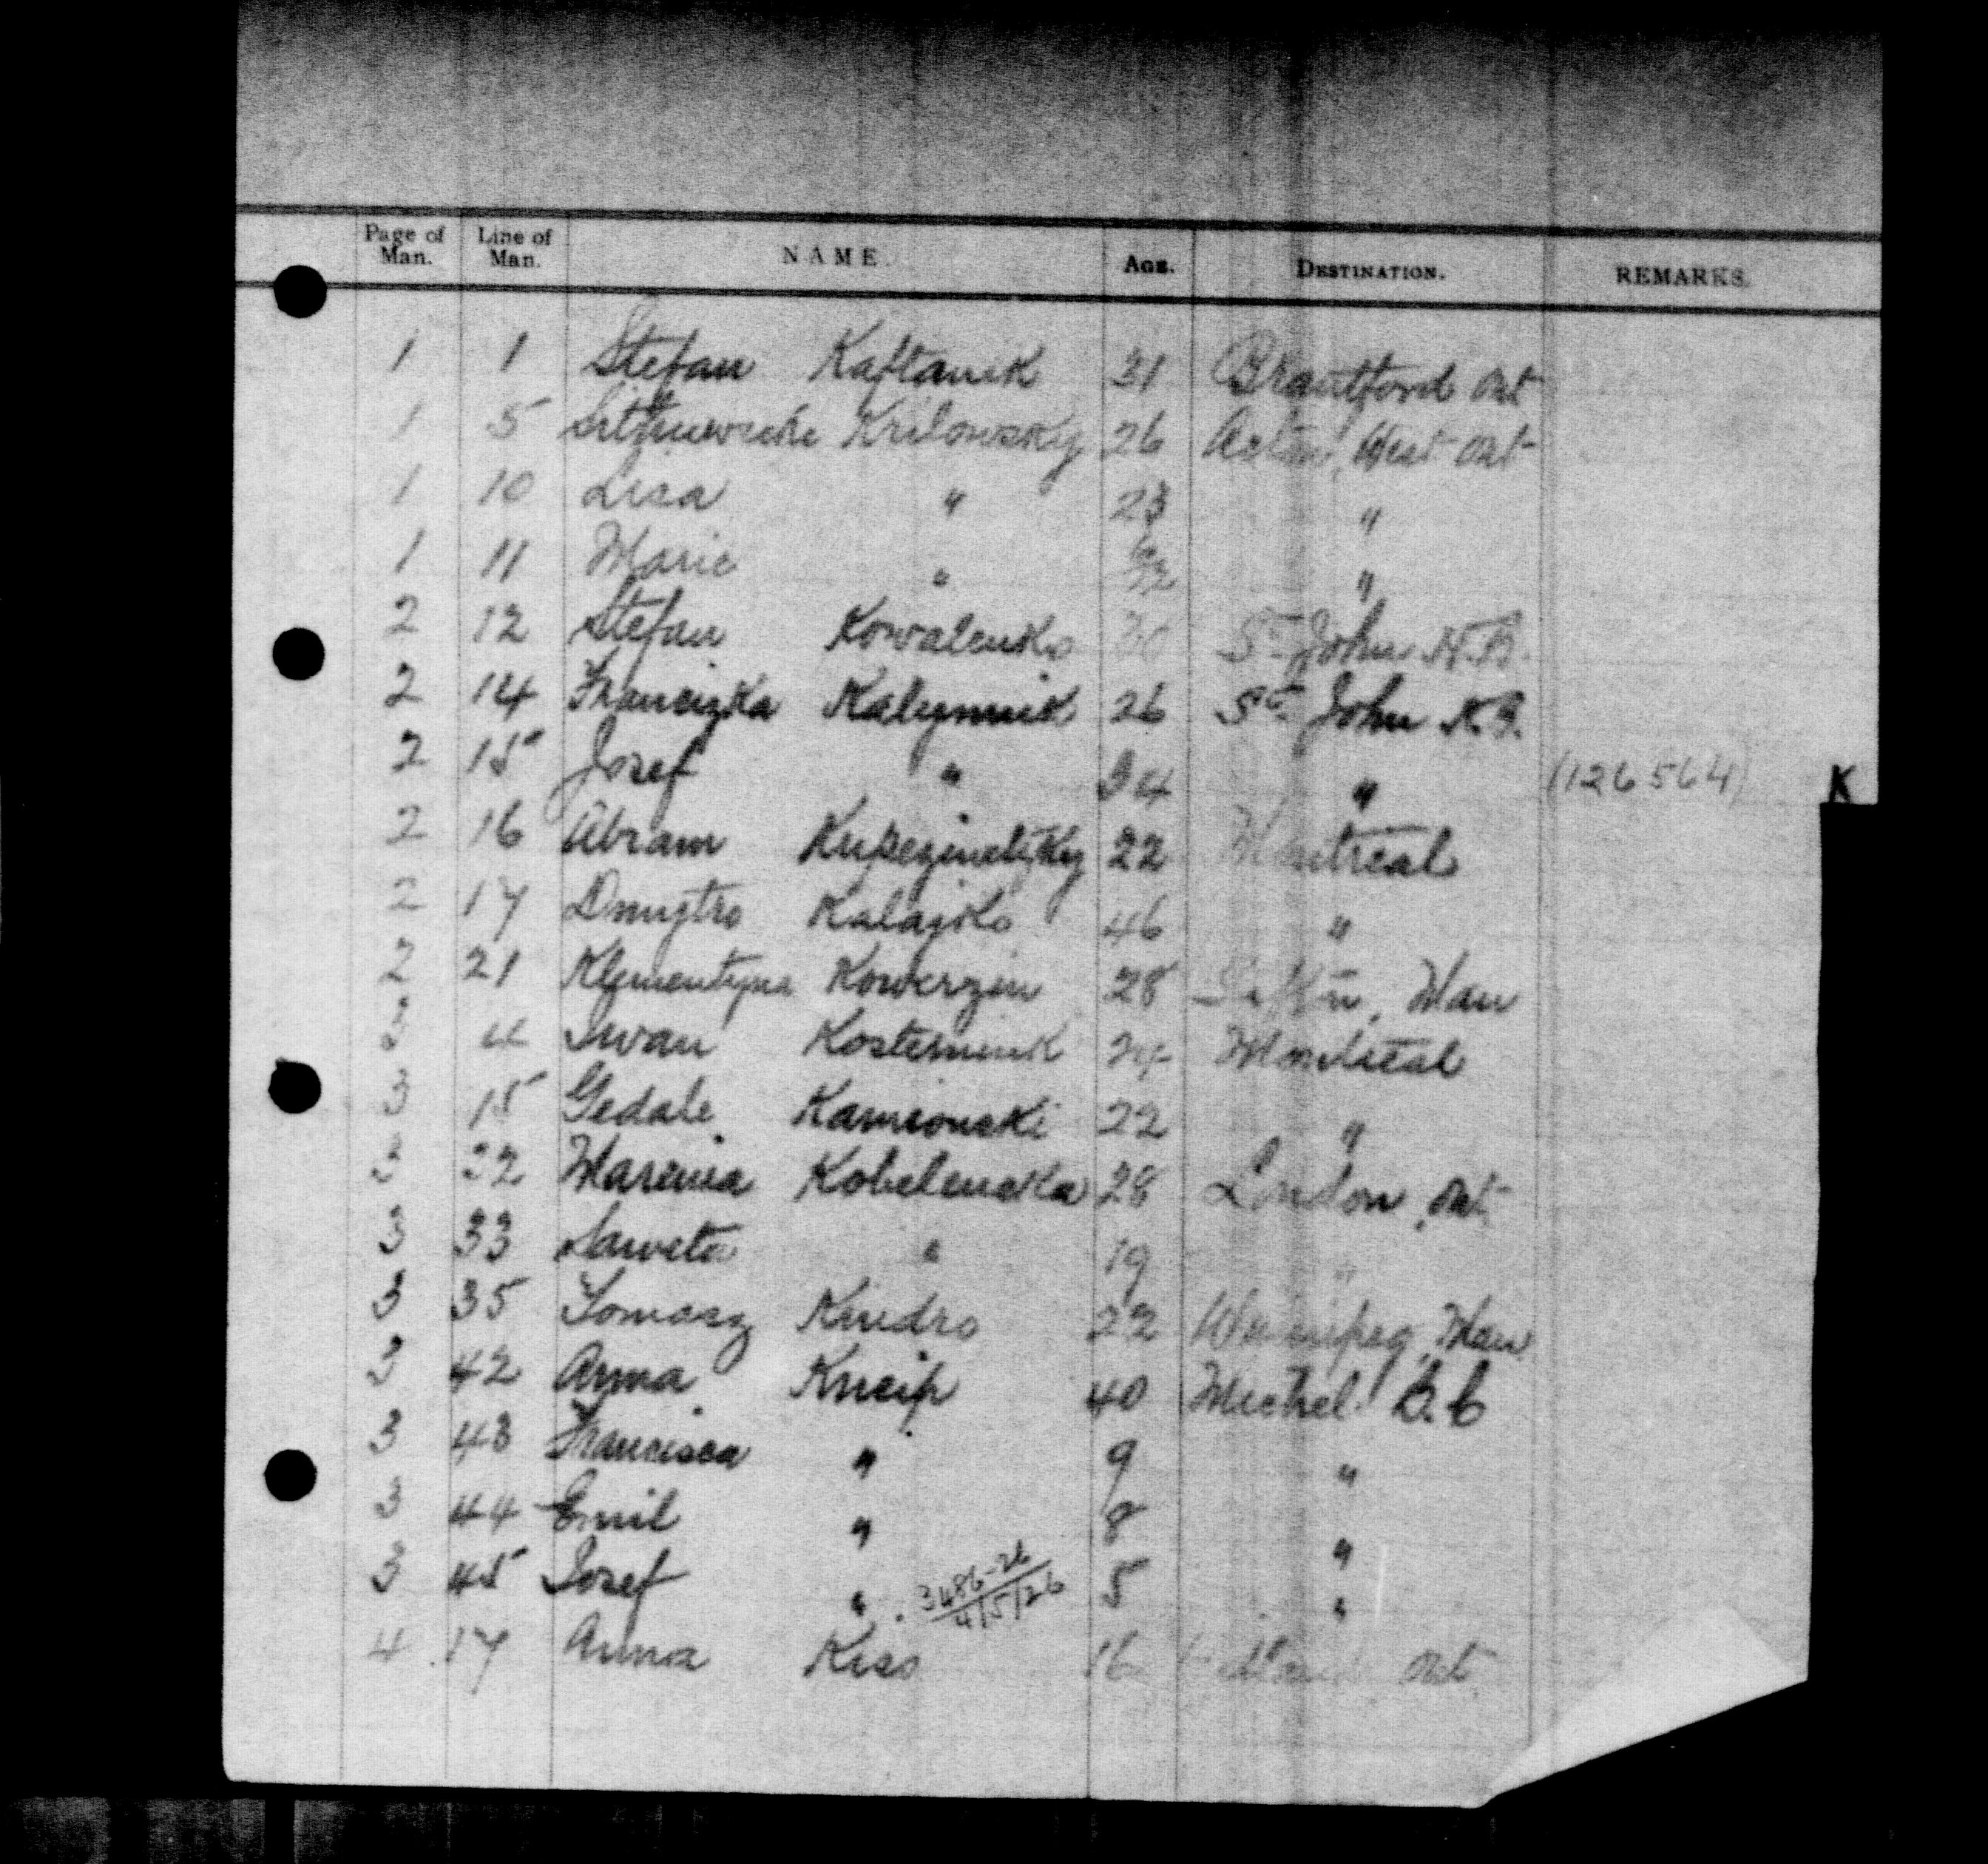 Page of Man. Line of Man. NAME. AGE. DESTINATION. REMARKS.
1 1 Stefan Kaftanik 31 Brantford Ont
1 5 Krilowsky 26 Acton West Ont
1 10 Lisa " 23 "
1 11 Marie " "
2 12 Stefan Kowalenko 30 St John N.B.
2 14 Francizka Kalynnik 26 St John N.B.
2 15 Jozef " 34 " (126564) K
2 16 Abram 22 Montreal
2 17 Dmytro Kalajko 46 "
2 21 Klementyna Kowerzin 28 Man
3 4 Iwan Kosteniuk 24 Montreal
3 15 Gedale Kamionski 22 "
3 32 Marenia Kobelenska 28 London, Ont
3 33 Saweta " 19 "
3 35 Tomasz Kindro 22 Winnipeg, Man
3 42 Anna Kneip 40 Michel B.C
3 43 Francisca " 9 "
3 44 Emil " 8 "
3 45 Josef " 3486-26 4/5/26 5 "
4 17 Anna Kiss 16 Ont